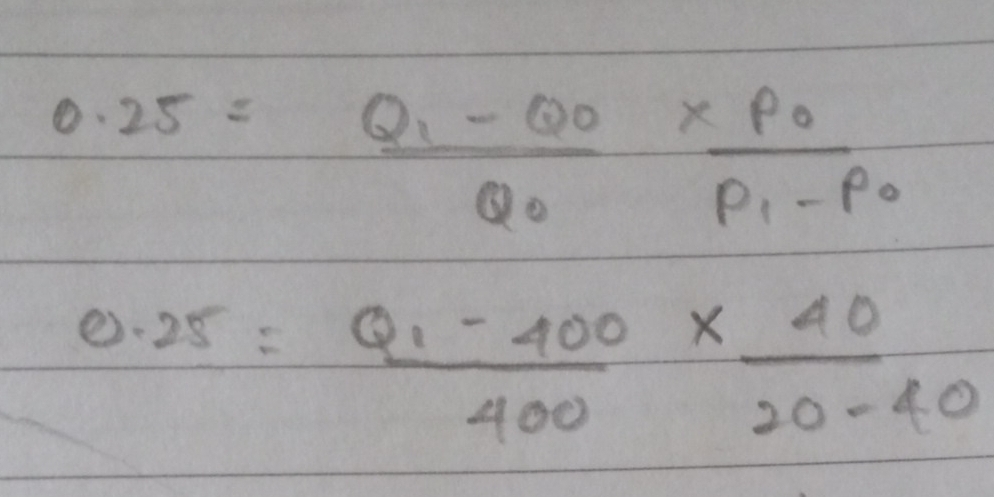 0.25 = Q₁ - Q₀ / Q₀ × P₀ / P₁ - P₀
0.25 = Q₁ - 400 / 400 × 40 / 20 - 40